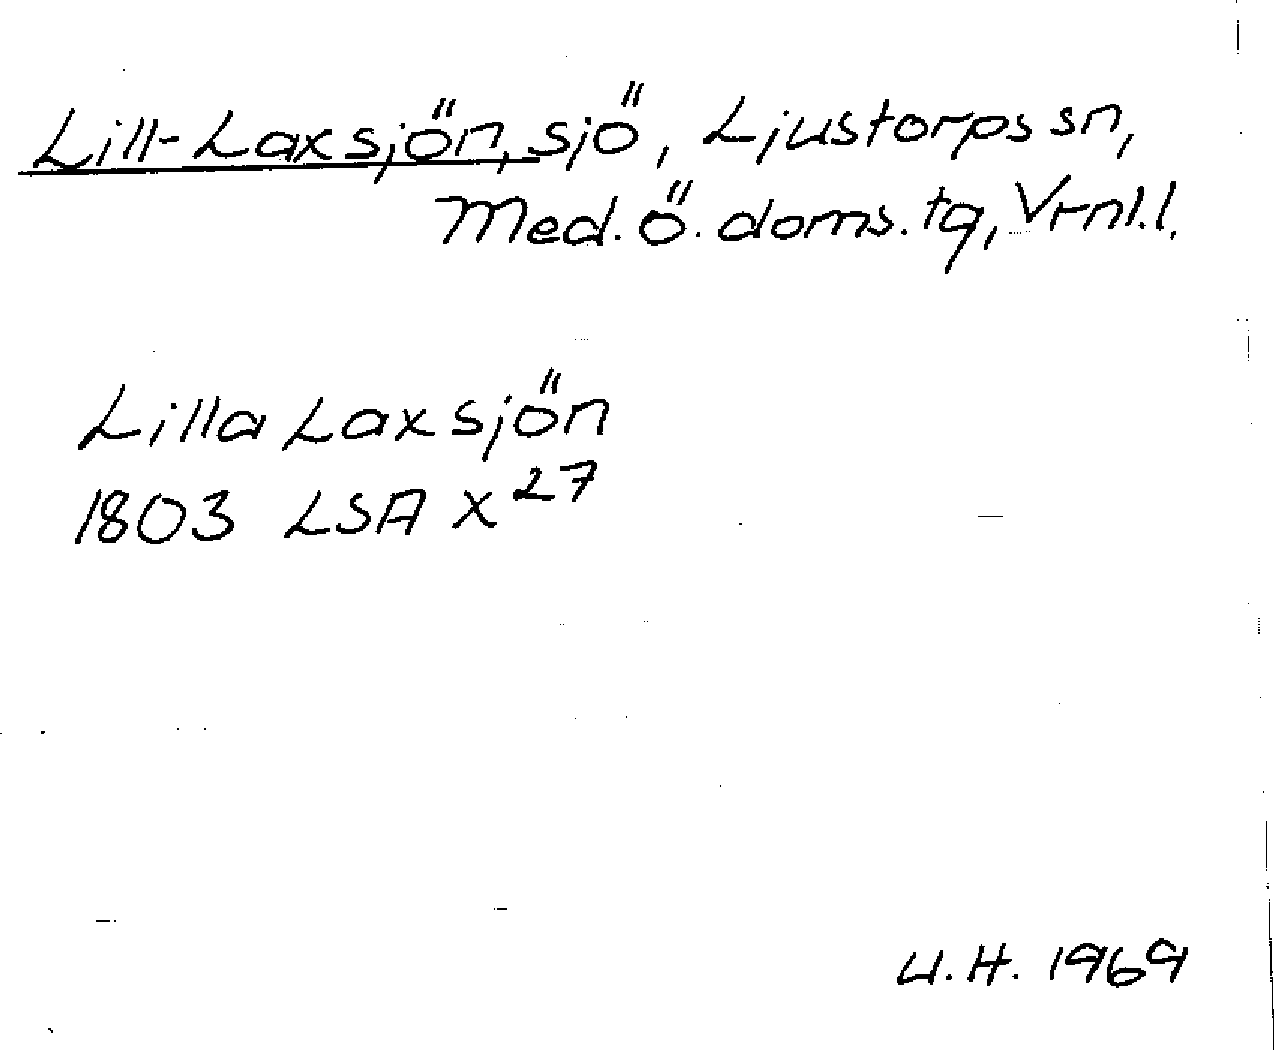 Lill-Laxsjön, sjö, Ljustorps sn,
Med. Ö. doms. tg, Vrnl.l.
Lilla Laxsjön
1803 LSA X 27
U.H. 1969